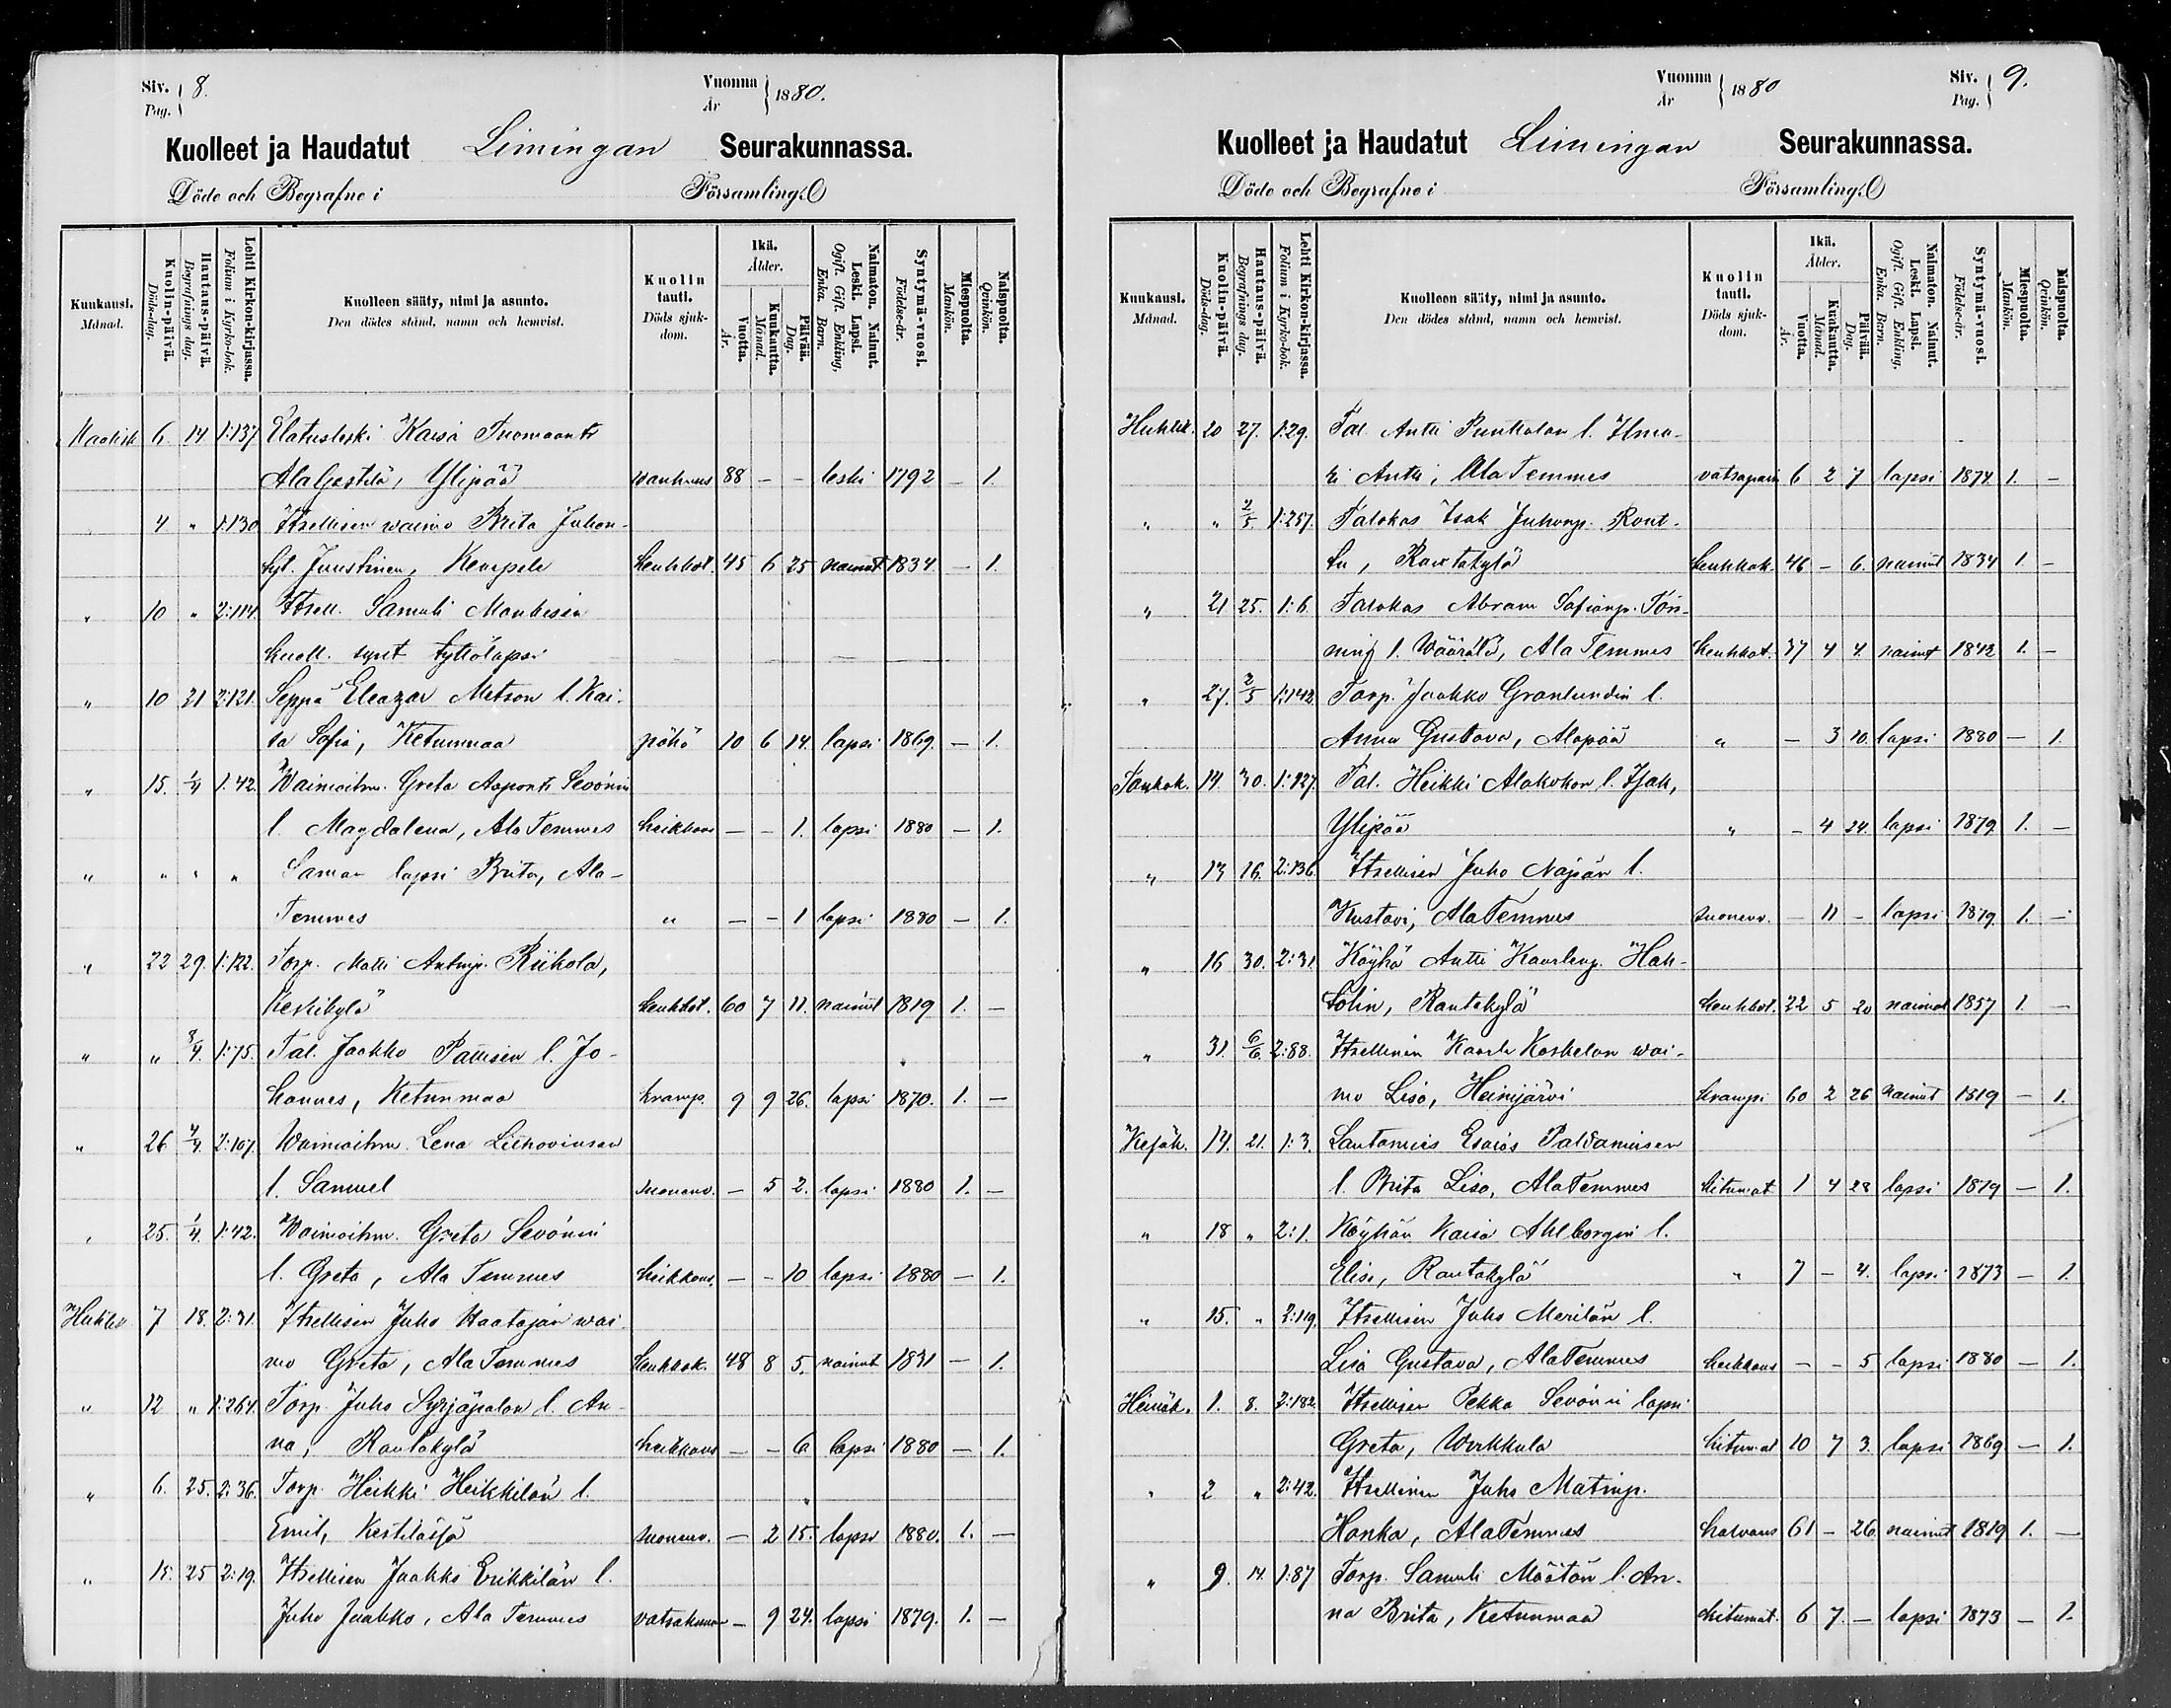 Siv. Pag. 8.
Vuonna År 1880.
Kuolleet ja Haudatut Limingan Seurakunnassa.
Döde och Begrafne i Församling.
Kuukausi. Månad.
Kuolin-päivä. Döds-dag.
Hautaus-päivä. Begrafnings dag.
Lehti Kirkon-kirjassa. Folium i Kyrko-bok.
Kuolleen sääty, nimi ja asunto. Den dödes stånd, namn och hemvist.
Kuolin tauti. Döds sjukdom.
Ikä. Ålder.
Vuotta. År.
Kuukautta. Månad.
Päivää. Dag.
Naimaton. Nainut. Leski. Lapsi. Ogift. Gift. Enkling, Enka. Barn.
Syntymä-vuosi. Födelse-år.
Miespuolta. Mankön.
Naispuolta. Qvinkön.
Maalisk 6. 14 1:137 Elatusleski Kaisa Tuomaant
AlaGestilä, Ylipää vanhuus 88 – – leski 1792 – 1.
4 " 1:130 Itsellisen waimo Brita Juhon-
tyt. Juustinen, Kempele keuhkot. 45 6 25 nainut 1834 – 1.
" 10 " 2:114. Itsell. Samuli
kuoll. synt tyttölapsi
" 10 21 2:121. Seppä Eleazar Metson l. Kai-
sa Sofia, Ketunmaa pöhö 10 6 14. lapsi 1869. – 1.
" 15. 1/4 1:42. Waimoihm. Greta Sevónin
l. Magdalena, Ala Temmes heikkous – – 1. lapsi 1880 – 1.
" " " " Saman lapsi Brita, Ala-
Temmes " – – 1 lapsi 1880 – 1.
" 22 29. 1:122. Torp. Matti Antinp. Riikola,
Keskikylä keuhkot. 60 7 11. nainut 1819 1. –
" " 8/4. 1:75. Tal. Jaakko l. Jo-
hannes, Ketunmaa kramp. 9 9 26. lapsi 1870. 1. –
" 26 4/4. 2:107. Waimoihm. Lena
l. Samuel suonenv. – 5 2. lapsi 1880 1. –
25. 1/4. 1:42. Waimoihm. Greta Sevónin
l. Greta, Ala Temmes heikkous – – 10 lapsi 1880 – 1.
Huhtik 7 18. 2:31. Itsellisen Juho Haatajan wai-
mo Greta, Ala Temmes keuhkok. 48 8 5. nainut 1831 – 1.
" 12 " 1:264. Torp. Juho Syrjäpalon l. An-
na, Rantakylä heikkous – – 6 lapsi 1880 – 1.
" 6. 25. 2:36. Torp. Heikki Heikkilän l.
Emil, suonenv. – 2 15. lapsi 1880. 1. –
" 15. 25 2:19. Itsellisen Jaakko Erikkilän l.
Juho Jaakko, Ala Temmes – 9 24. lapsi 1879. 1. –
Vuonna År 1880
Siv. Pag. 9.
Kuolleet ja Haudatut Limingan Seurakunnassa.
Döde och Begrafne i Församling.
Kuukausi. Månad.
Kuolin-päivä. Döds-dag.
Hautaus-päivä. Begrafnings dag.
Lehti Kirkon-kirjassa. Folium i Kyrko-bok.
Kuolleen sääty, nimi ja asunto. Den dödes stånd, namn och hemvist.
Kuolin tauti. Döds sjukdom.
Ikä. Ålder.
Vuotta. År.
Kuukautta. Månad.
Päivää. Dag.
Naimaton. Nainut. Leski. Lapsi. Ogift. Gift. Enkling, Enka. Barn.
Syntymä-vuosi. Födelse-år.
Miespuolta. Mankön.
Naispuolta. Qvinkön.
Huhtik. 20 27. 1:29. Tal. Antti l. Ilma-
ri Antti, Ala Temmes 6 2 7 lapsi 1874. 1. –
" " 2/5 1:257. Talokas Isak Juhonp. Rant-
la, Rantakylä keuhkok. 46 – 6. nainut 1834 1. –
" 21 25. 1:6. Talokas Abram Tön-
ning l. Määrälä, Ala Temmes keuhkot. 37 4 4. nainut 1842 1. –
" 27. 2/5 1:142. Torp. Jaakko Granlundin l.
Anna Gustava, Alapää " – 3 10. lapsi 1880 – 1.
Toukok. 14. 30. 1:127. Tal. Heikki Alakokon l. Isak,
Ylipää " – 4 24. lapsi 1879 1. –
" 13 16. 2:136. Itsellisen Juho Näpän l.
Kustavi, AlaTemmes suonenv. – 11 – lapsi 1879. 1. –
" 16 30. 2:31. Köyhä Antti Kaarlenp. Hak-
kolin, Rantakylä keuhkot. 22 5 20 1857 1. –
" 31. 6/6. 2:88. Itsellisen Kaarle Koskelan wai-
mo Lisa, Heinijärvi krampi 60 2 26 nainut 1819 – 1.
Kesäk. 14. 21. 1:3. Lautamies Esaias Paldaniusen
l. Brita Lisa, AlaTemmes hitumat 1 4 28 lapsi 1879 – 1.
" 18 " 2:1. Köyhän Kaisa Ahlborgin l.
Elisa, Rantakylä " 7 – 4. lapsi 1873 – 1.
" 15. " 2:119. Itsellisen Juho Merilän l.
Lisa Gustava, AlaTemmes heikkous – – 5 lapsi 1880 – 1.
Heinäk. 1. 8. 2:182. Itsellisen Pekka Sevónin lapsi
Greta, Wirkkula hitumat 10 7 3. lapsi 1869 – 1.
" 2 " 2:42. Itsellinen Juho Matinp.
Honka, AlaTemmes halvaus 61 – 26. nainut 1819 1. –
" 9. 14. 1:87 Torp. Samuli Määtän l. An-
na Brita, Ketunmaa hitumat. 6 7. – lapsi 1873 – 1.